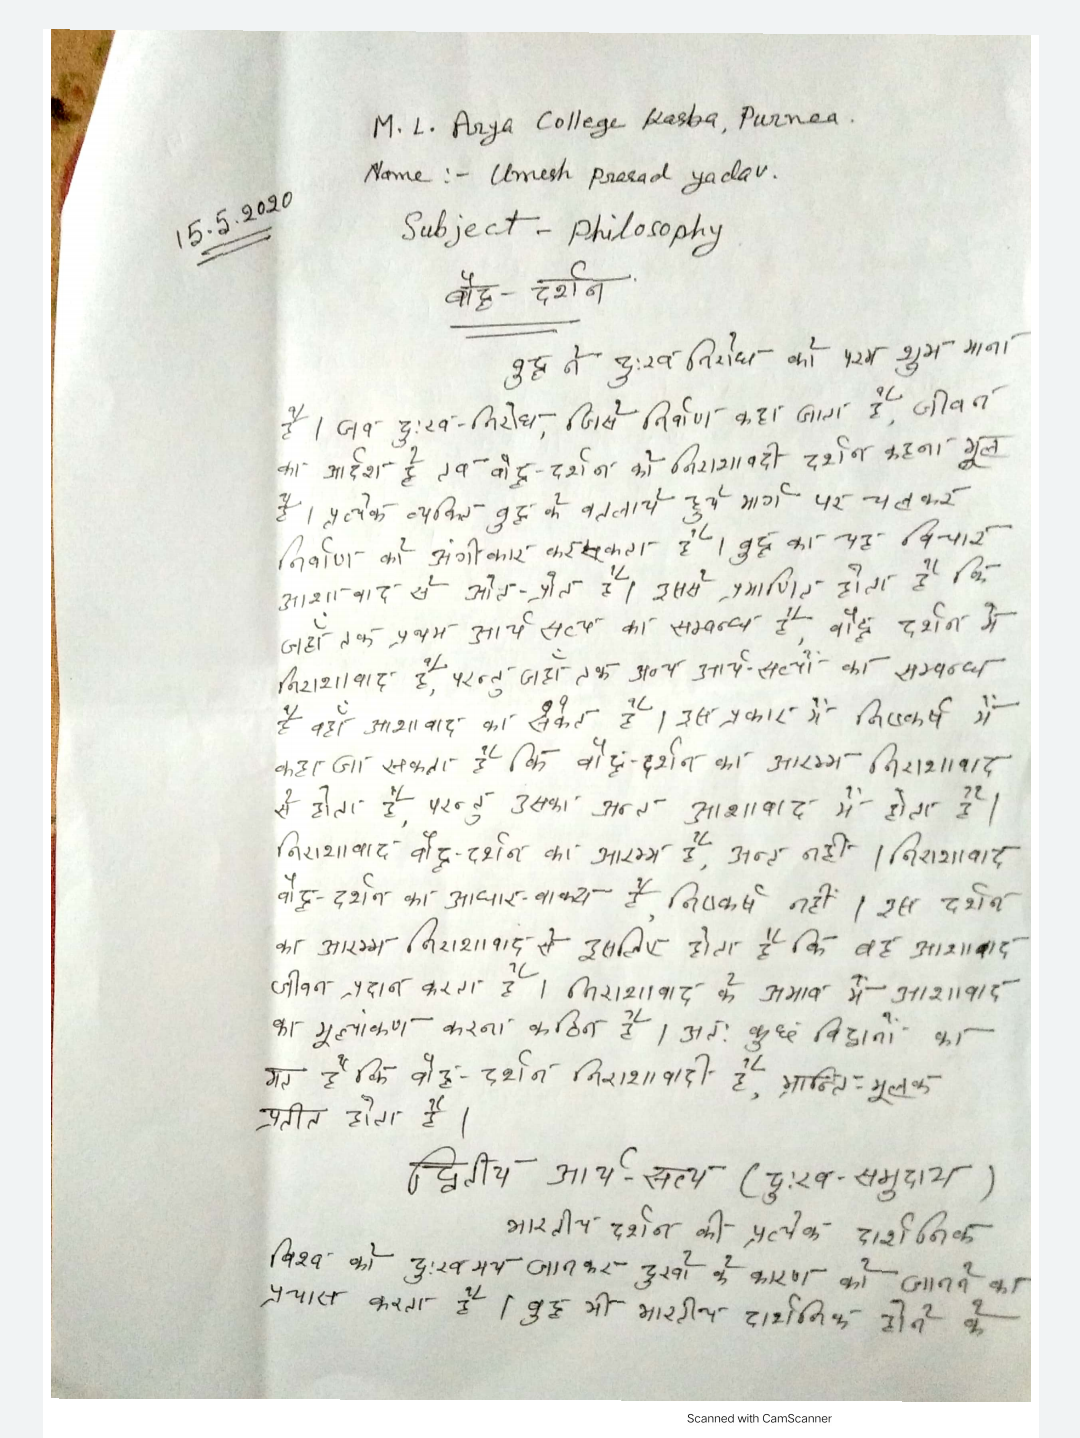 M. L. Arya College Kasba, Purnea.
Name :- Umesh Prasad yadav.
15.5.2020
Subject - Philosophy
बौद्ध - दर्शन
बुद्ध ने दुःख निरोध को परम शुभ माना
है। जब दुःख-निरोध, जिसे निर्वाण कहा जाता है, जीवन
का आर्दश है तब बौद्ध-दर्शन को निराशावादी दर्शन कहना भूल
है। प्रत्येक व्यक्ति बुद्ध के बतलाये हुये मार्ग पर चलकर
निर्वाण को अंगीकार कर सकता है। बुद्ध का यह विचार
आशावाद से ओत-प्रोत है। इससे प्रमाणित होता है कि
जहाँ तक प्रथम आर्य सत्य का सम्बन्ध है, बौद्ध दर्शन में
निराशावाद है, परन्तु जहाँ तक अन्य आर्य-सत्यों का सम्बन्ध
है वहाँ आशावाद का संकेत है। इस प्रकार में निष्कर्ष में
कहा जा सकता है कि बौद्ध-दर्शन का आरम्भ निराशावाद
से होता है, परन्तु उसका अन्त आशावाद में होता है।
निराशावाद बौद्ध-दर्शन का आरम्भ है, अन्त नहीं। निराशावाद
बौद्ध-दर्शन का आधार-वाक्य है, निष्कर्ष नहीं। इस दर्शन
का आरम्भ निराशावाद से इसलिए होता है कि वह आशावाद
जीवन प्रदान करता है। निराशावाद के अभाव में आशावाद
का मूल्यांकण करना कठिन है। अतः कुछ विद्वानों का
मत है कि बौद्ध-दर्शन निराशावादी है, भ्रान्ति-मूलक
प्रतीत होता है।
द्वितीय आर्य-सत्य (दुःख-समुदाय)
भारतीय दर्शन की प्रत्येक दार्शनिक
विश्व को दुःखमय जानकर दुखों के कारण को जानने का
प्रयास करता है। बुद्ध भी भारतीय दार्शनिक होने के
Scanned with CamScanner